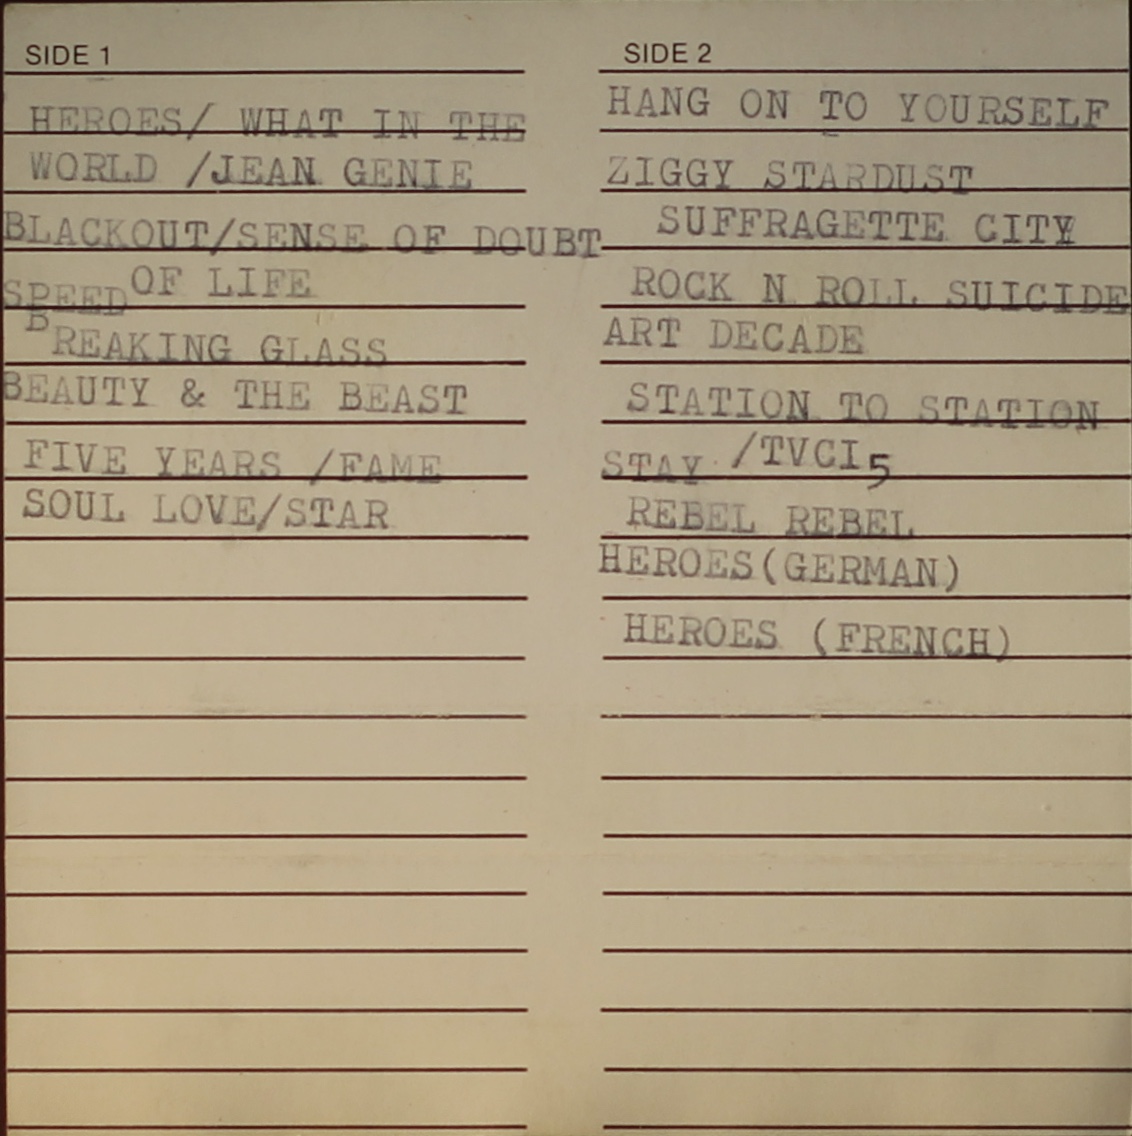 SIDE 1
HEROES/ WHAT IN THE
WORLD /JEAN GENIE
BLACKOUT/SENSE OF DOUBT
SPEED OF LIFE
BREAKING GLASS
BEAUTY & THE BEAST
FIVE YEARS /FAME
SOUL LOVE/STAR
SIDE 2
HANG ON TO YOURSELF
ZIGGY STARDUST
SUFFRAGETTE CITY
ROCK N ROLL SUICIDE
ART DECADE
STATION TO STATION
STAY /TVCI5
REBEL REBEL
HEROES(GERMAN)
HEROES (FRENCH)